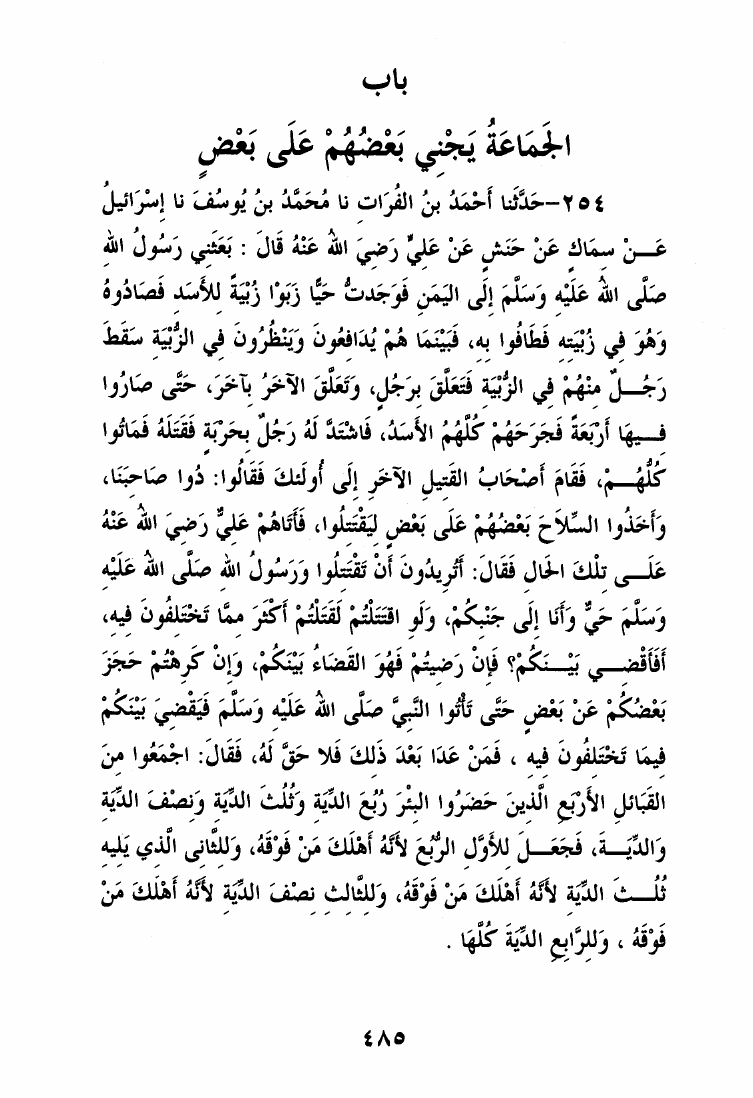 باب
الجَمَاعَةُ يَجْنِي بَعْضُهُمْ عَلَى بَعْضٍ
٢٥٤-حَدَّثَنا أَحْمَدُ بنُ الفُرَاتِ نا مُحَمَّدُ بنُ يُوسُفَ نا إِسْرَائيلُ
عَـــنْ سمَاكٍ عَنْ حَنَشٍ عَنْ عَلِيٍّ رَضِيَ اللهُ عَنْهُ قَالَ : بَعَثَنِي رَسُولُ اللهِ
صَلَّى اللهُ عَلَيْهِ وَسَلَّمَ إِلَى اليَمَنِ فَوَجَدتُ حَيًّا زَبَوْا زُبْيَةً للأَسَدِ فَصَادُوهُ
وَهُوَ فِي زُبْيَتِهِ فَطَافُوا بِهِ، فَبَيْنَمَا هُمْ يُدَافِعُونَ وَيَنْظُرُونَ فِي الزُّبْيَةِ سَقَطَ
رَجُـــلٌ مِنْهُمْ فِي الزُّبْيَةِ فَتَعَلَّقَ بِرَجُلٍ، وَتَعَلَّقَ الآخَرُ بآخَرَ، حَتَّى صَارُوا
فـــيهَا أَرْبَعَةً فَجَرَحَهُمْ كُلَّهُمُ الأَسَدُ، فَاشْتَدَّ لَهُ رَجُلٌ بِحَرْبَةٍ فَقَتَلَهُ فَمَاتُوا
كُلُّهُـــمْ، فَقَامَ أَصْحَابُ القَتِيلِ الآخَرِ إِلَى أُولَئكَ فَقَالُوا: دُوا صَاحِبَنَا،
وَأَخَذُوا السِّلاَحَ بَعْضُهُمْ عَلَى بَعْضٍ لِيَقْتَتِلُوا، فَأَتَاهُمْ عَلِيٌّ رَضِيَ اللهُ عَنْهُ
عَلَـــى تِلْكَ الحَالِ فَقَالَ: أَتُرِيدُونَ أَنْ تَقْتَتِلُوا وَرَسُولُ اللهِ صَلَّى اللهُ عَلَيْهِ
وَسَلَّمَ حَيٌّ وَأَنَا إِلَى جَنْبِكُمْ، وَلَوِ اقتَتَلْتُمْ لَقَتَلْتُمْ أَكْثَرَ ممَّا تَخْتَلِفُونَ فيهِ،
أَفَأَقْضـــي بَيْـــنَكُمْ؟ فَإِنْ رَضِيتُمْ فَهُوَ القَضَاءُ بَيْنَكُمْ، وَإِنْ كَرِهْتُمْ حَجَزَ
بَعْضُكُمْ عَنْ بَعْضٍ حَتَّى تَأْتُوا النَّبِيَّ صَلَّى اللهُ عَلَيْهِ وَسَلَّمَ فَيَقْضِيَ بَيْنَكُمْ
فِيمَا تَخْتَلِفُونَ فيهِ ، فَمَنْ عَدَا بَعْدَ ذَلكَ فَلا حَقَّ لَهُ، فَقَالَ: اجْمَعُوا مِنَ
القَبَائلِ الأَرْبَعِ الَّذِينَ حَضَرُوا البِئْرَ رُبُعَ الدِّيَةِ وَثُلُثَ الدِّيَةِ وَنِصْفَ الدِّيَةِ
وَالدِّيَـــةَ، فَجَعَـــلَ للأوَّلِ الرُّبُعَ لأَنَّهُ أَهْلَكَ مَنْ فَوْقَهُ، وَللثَّانِى الَّذِي يَلِيهِ
ثُلُـــثَ الدِّيَةِ لأَنَّهُ أَهْلَكَ مَنْ فَوْقَهُ، وَللثَّالِثِ نِصْفَ الدِّيَةِ لأَنَّهُ أَهْلَكَ مَنْ
فَوْقَهُ ، وَللرَّابِعِ الدِّيَةَ كُلَّهَا .
٤٨٥